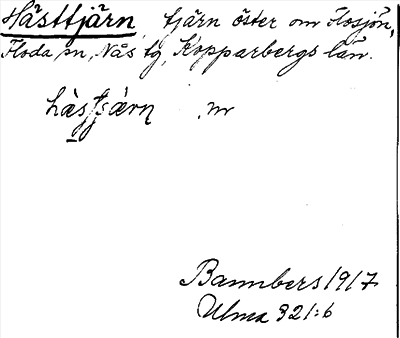 Hästtjärn, tjärn öster om Flosjön,
Floda sn, Nås tg, Kopparbergs län.
hàstjærn nr
Bannbers 1917
Ulma 321:6